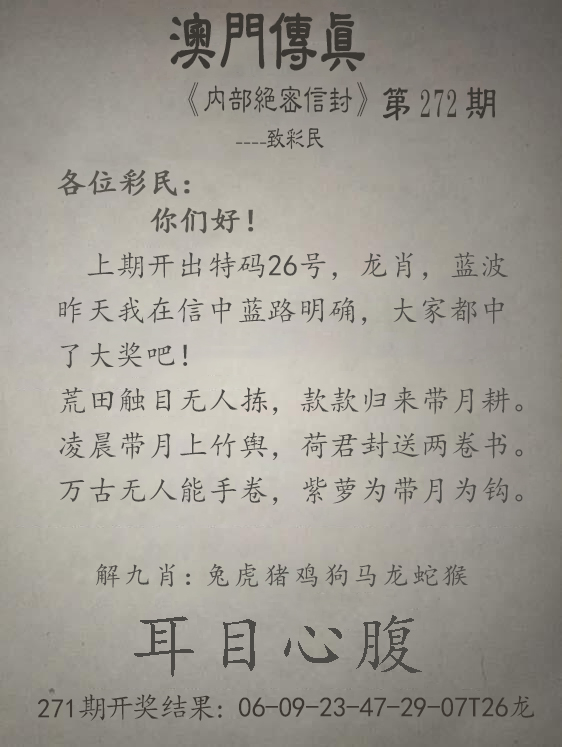 澳門傳真
《内部絕密信封》第272期
----致彩民
各位彩民：
你们好！
上期开出特码26号，龙肖，蓝波
昨天我在信中蓝路明确，大家都中
了大奖吧！
荒田触目无人拣，款款归来带月耕。
凌晨带月上竹舆，荷君封送两卷书。
万古无人能手卷，紫萝为带月为钩。
解九肖：兔虎猪鸡狗马龙蛇猴
耳目心腹
271期开奖结果：06-09-23-47-29-07T26龙